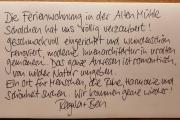 Die Ferienwohnung in der Alten Mühle
hat uns völlig verzaubert!
geschmackvoll eingerichtet und wunderschön
renoviert, moderne Innenarchitektur in uraltem
Gemäuer. Das ganze Anwesen ist romantisch,
von wilder Natur umgeben.
Ein Ort für Menschen, die Ruhe, Harmonie und
Schönheit suchen. Wir kommen gerne wieder!